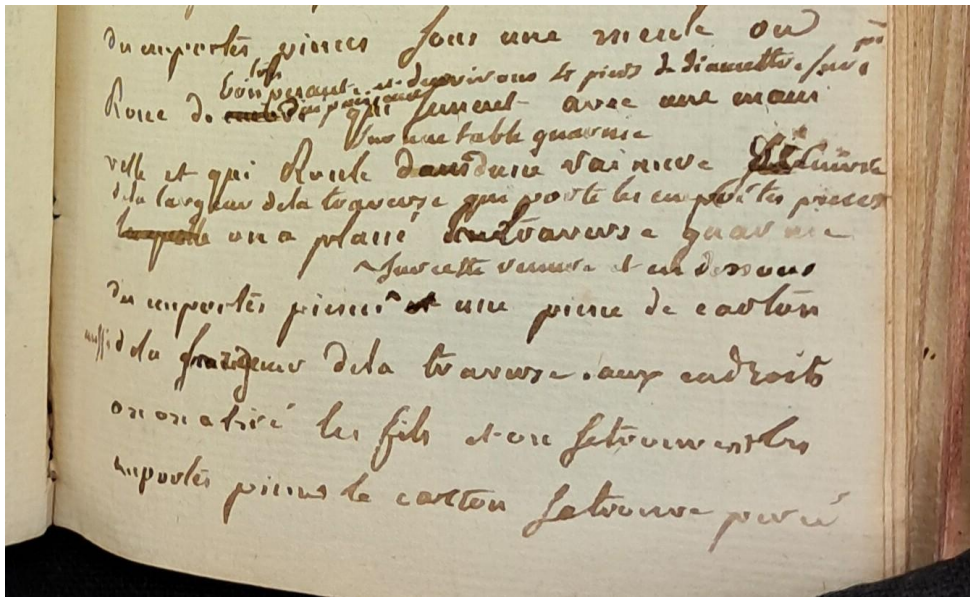 des emportes pieces sous une meule ou
bois pesante et denviron 4 pieds de diamettre sur
Roue de qui se meut avec une mani
sur une table guarnie
velle et qui Roule dans une Rainure
de la largeur de la traverse qui porte les emportes pieces
on a placé traverse guarnie
sur cette rainure et en dessous
des emportes pieces une piece de carton
aussi de la largeur de la traverse. aux endroits
on on a tiré les fils et ou se trouvent les
emportes pieces le carton se trouve percé